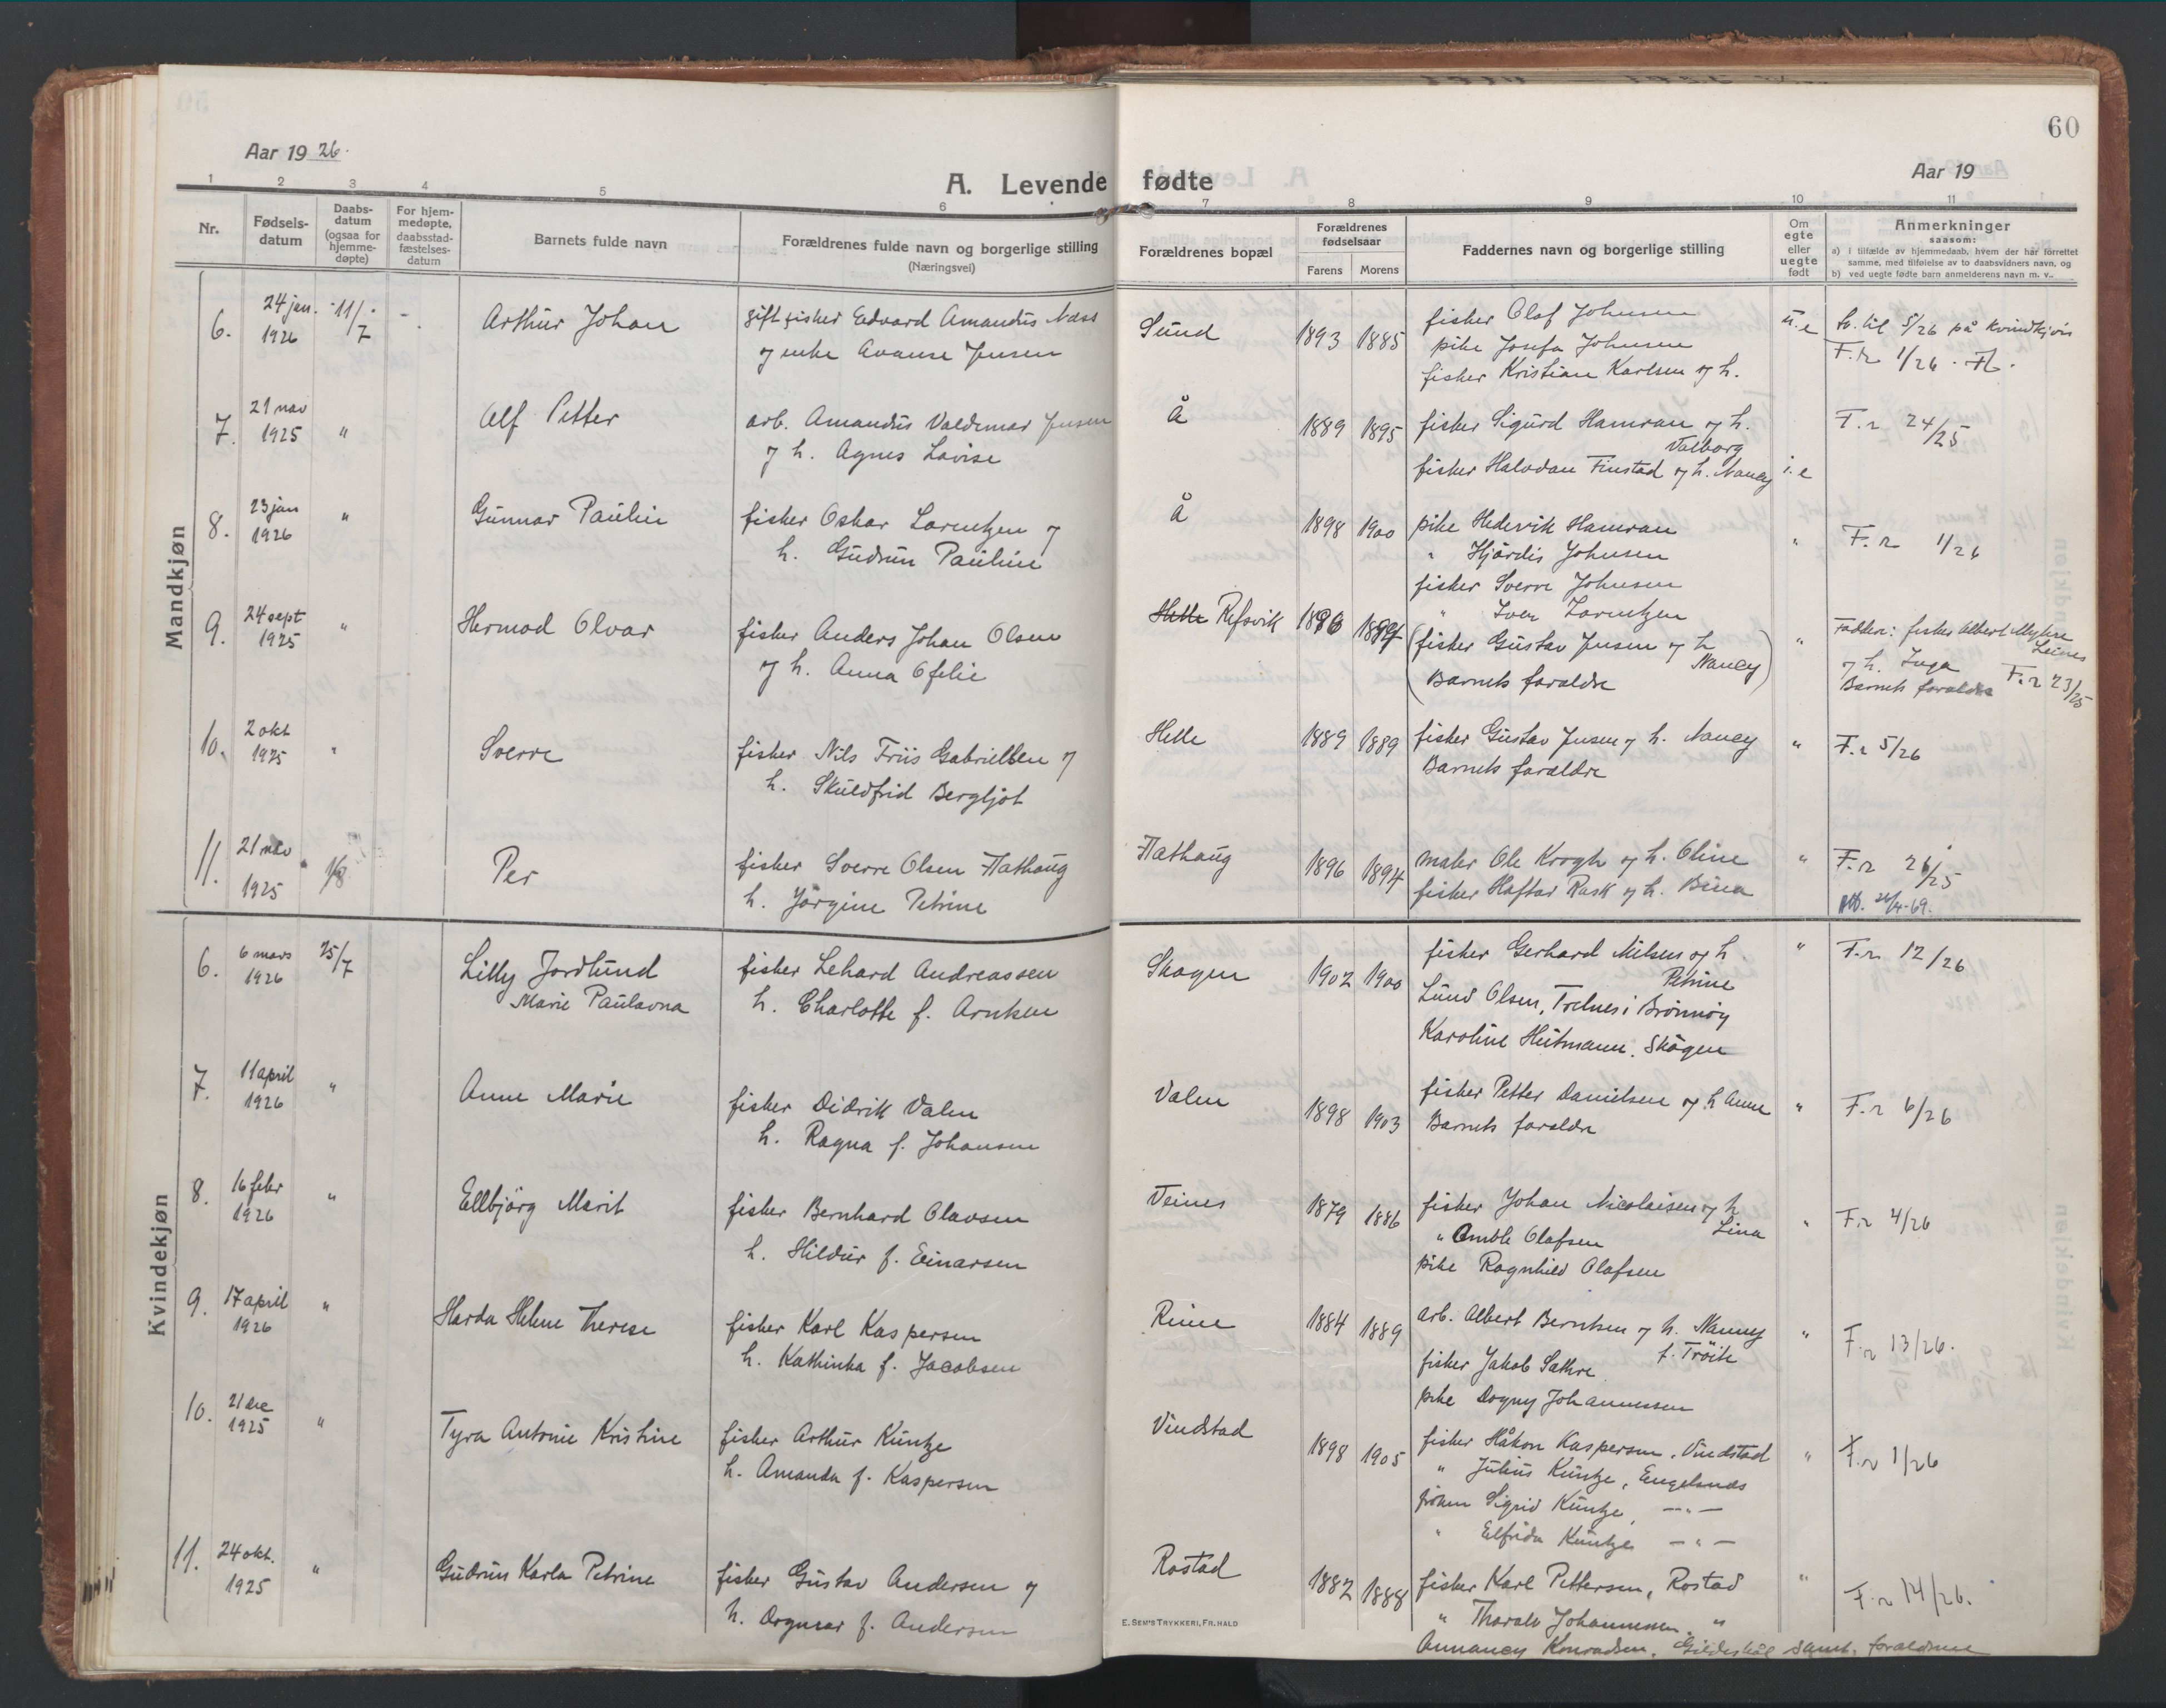 60
Aar 19 26.
Aar 19
A. Levende fødte
1 2 3 4 5 6 7 8 9 10 11
Nr.
Fødsels-
datum
Daabs-
datum
(ogsaa for
hjemme-
døpte)
For hjem-
medøpte,
daabsstad-
fæstelses-
datum
Barnets fulde navn
Forældrenes fulde navn og borgerlige stilling
(Næringsvei)
Forældrenes bopæl
Forældrenes
fødselsaar
Farens Morens
Faddernes navn og borgerlige stilling
Om
egte
eller
uegte
født
Anmerkninger
saasom:
a) i tilfælde av hjemmedaab, hvem der har forrettet
samme, med tilføielse av to daabsvidners navn, og
b) ved uegte fødte barn anmelderens navn m. v..
Mandkjøn
6. 24 jan. 1926 11/7 - Arthur Johan
gift fisker Edvard Amandus Næss
og enke Avanse Jensen
Sund 1893 1885
fisker Olaf Johnsen
pike Josefa Johnsen
fisker Kristian Karlsen og h.
u.e
Sv. til 5/26 på kvindkjøn
F.r 1/26
7. 21 nov 1925 " Alf Petter
arb. Amandus Valdemar Jensen
og h. Agnes Lovise
Å 1889 1895
fisker Sigurd Hamran og h.
Valborg
fisker Halvdan Finstad og h. Nancy
i.e
F.r 24/25
8. 23 jan 1926 " Gunnar Paulin
fisker Oskar Lorentzen og
h. Gudrun Pauline
Å 1898 1900
pike Hedevik Hamran
" Hjördis Johnsen
fisker Sverre Johnsen
" Iver Lorentzen
"
F.r 1/26
9. 24 sept 1925 " Hermod Olvar
fisker Anders Johan Olsen
og h. Anna Ofelie
Helle Refsvik 1896 1894
(fisker Gustav Jensen og h
Nancy)
Barnets foreldre
"
Faddere: fisker Albert Myhre
Leines
og h. Inga
Barnets foreldre F.r 23/25
10. 2 okt 1925 " Sverre
fisker Nils Friis Gabrielsen og
h. Skuldfrid Bergljot
Helle 1889 1889
fisker Gustav Jensen og h. Nancy
Barnets foreldre
"
F.r 5/26
11. 21 nov 1925 Per
fisker Sverre Olsen Hathaug
h. Jørgine Petrine
Hathaug 1896 1894
maler Ole Krogh og h. Oline
fisker Haftor Rask og h. Bina
"
F.r 26/25
Kvindekjøn
6. 6 mars 1926 25/7 Lilly Jordlund
Marie Paulovna
fisker Lehard Andreassen
h. Charlotte f. Arntsen
Skogen 1902 1900
fisker Gerhard Nilsen og h.
Petrine
Lund Olsen, Trelnes i Brønnøy
Karoline Heitmann, Skogen
"
F.r 12/26
7. 11 april 1926 " Anne Marie
fisker Didrik Valen
h. Ragna f. Johansen
Valen 1898 1903
fisker Petter Danielsen og h Anne
Barnets foreldre
"
F.r 6/26
8. 16 febr 1926 " Ellbjörg Marit
fisker Bernhard Olavsen
h. Hildur f. Einarsen
Veines 1879 1886
fisker Johan Nicolaisen og h
Lina
" Omble Olafsen
pike Ragnhild Olafsen
"
F.r 4/26
9. 17 april 1926 " Harda Helene Therese
fisker Karl Kaspersen
h. Kathinka f. Jacobsen
Reine 1884 1889
arb. Albert Berntsen og h. Nanny
f. Tröite
fisker Jakob Sathre
pike Dagny Johannessen
"
F.r 13/26.
10. 21 des 1925 " Tyra Antonie Kristine
fisker Arthur Kuntze
h. Amanda f. Kaspersen
Vindstad 1898 1905
fisker Håkon Kaspersen, Vindstad
" Julius Kuntze, Engelsnes
frøken Sigrid Kuntze, —"—
" Elfrida Kuntze —"—
"
F.r 1/26
11. 24 okt. 1925 " Gudrun Karla Petrine
fisker Gustav Andersen og
h. Dagmar f. Andersen
Rostad 1882 1888
fisker Karl Pettersen, Rostad
" Thoralv Johannessen "
Annancy Konradsen, Gildeskål samt. foreldrene
"
F.r 14/26.
E. SEM'S TRYKKERI, FR.HALD